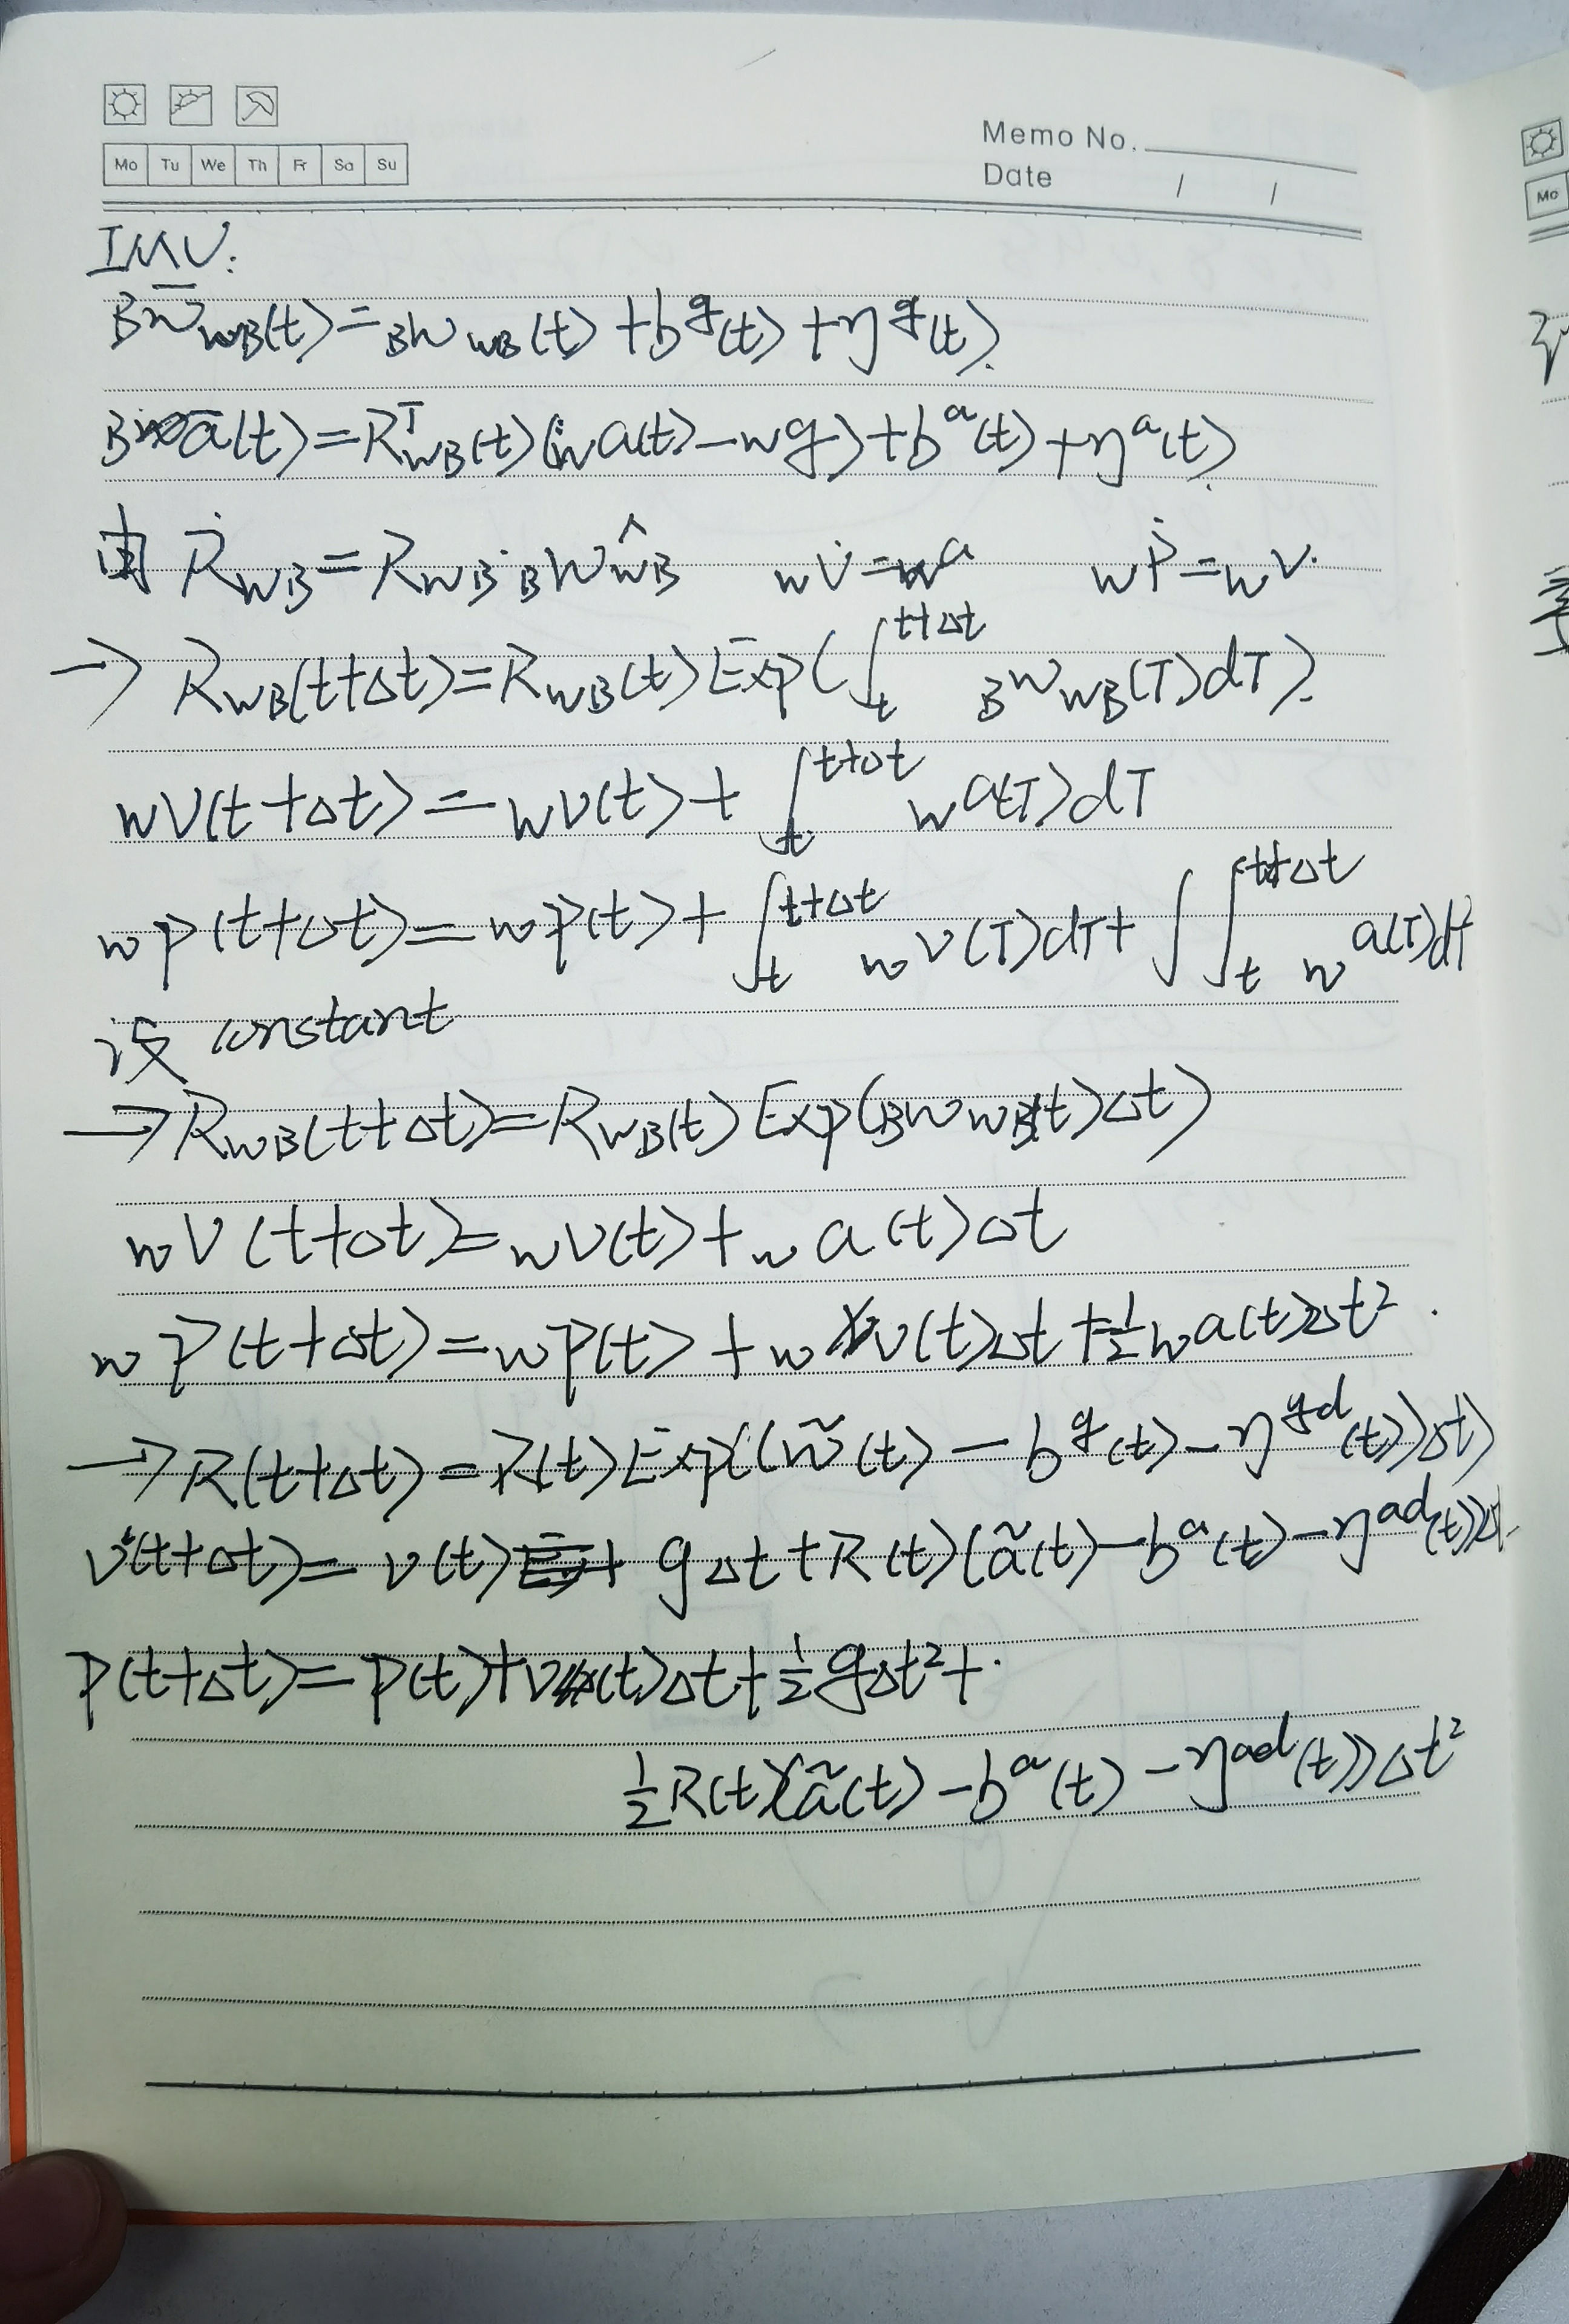 Mo Tu We Th Fr Sa Su
Memo No.
Date / /
IMU:
B w̄ WB(t) = B w WB(t) + b^g(t) + η^g(t).
B ā(t) = R^T_WB(t)(w a(t) - w g) + b^a(t) + η^a(t).
由 Ṙ_WB = R_WB · B w^_WB w v̇ = w a w Ṗ = w v.
→ R_WB(t+Δt) = R_WB(t) Exp(∫_t^{t+Δt} B w WB(T)dT).
w v(t+Δt) = w v(t) + ∫_t^{t+Δt} w a(T)dT
w p(t+Δt) = w p(t) + ∫_t^{t+Δt} w v(T)dT + ∫∫_t^{t+Δt} w a(T)dT²
设 constant
→ R_WB(t+Δt) = R_WB(t) Exp(B w WB(t)Δt)
w v(t+Δt) = w v(t) + w a(t)Δt
w P(t+Δt) = w P(t) + w v(t)Δt + ½ w a(t)Δt².
→ R(t+Δt) = R(t) Exp((w̃(t) - b^g(t) - η^{gd}(t))Δt)
v(t+Δt) = v(t) + gΔt + R(t)(ã(t) - b^a(t) - η^{ad}(t))Δt
P(t+Δt) = P(t) + v(t)Δt + ½gΔt² +.
½R(t)(ã(t) - b^a(t) - η^{ad}(t))Δt²
Mo